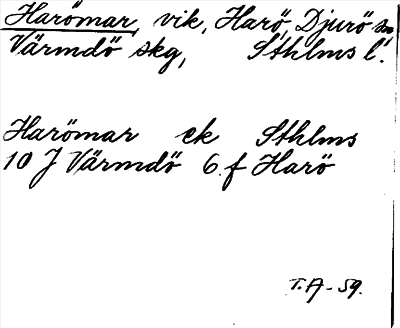 Harömar, vik, Harö, Djurö sn
Värmdö skg, Sthlms l.
Harömar ek Sthlms
10 J Värmdö 6 f Harö
T.A - 59.